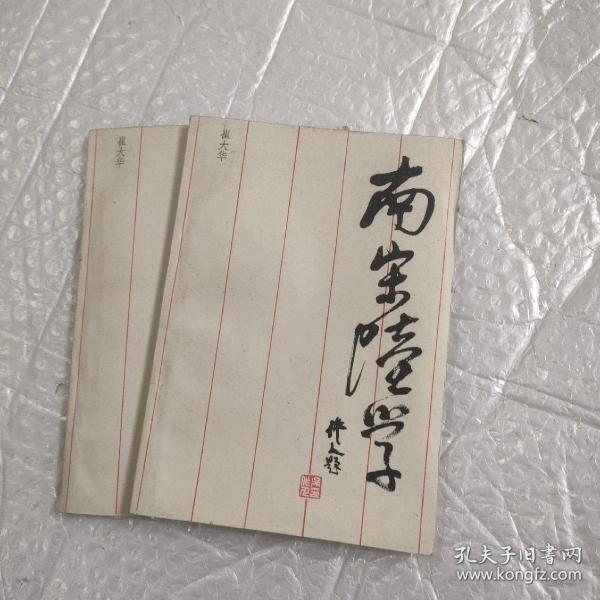 崔大华
崔大华
南宋陸学
孔夫子旧书网
www.kongfz.com